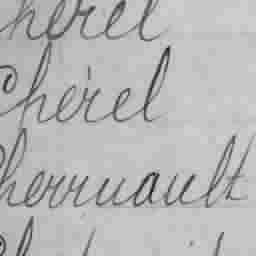 Chérel
Chérel
Cherruault